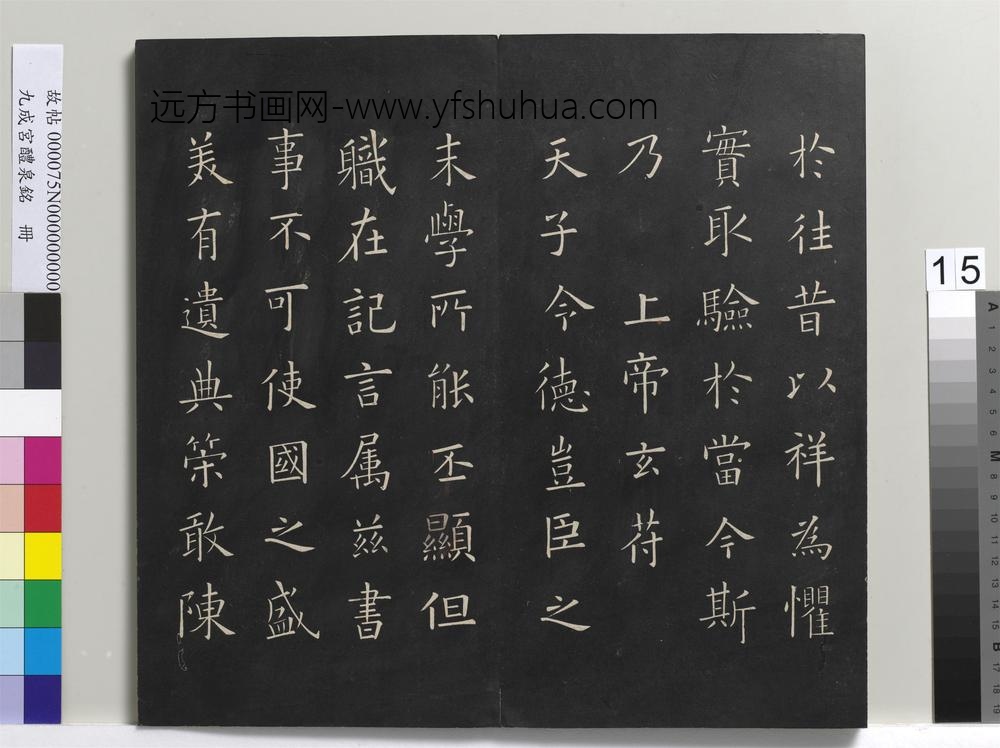 远方书画网-www.yfshuhua.com
於往昔以祥為懼
實取驗於當今斯
乃上帝玄苻
天子令德豈臣之
末學所能丕顯但
職在記言属茲書
事不可使國之盛
美有遺典策敢陳
故帖 000075N000000000
九成宮醴泉銘 冊
15
A 1 2 3 4 5 6 M 8 9 10 11 12 13 14 15 B 17 18 19